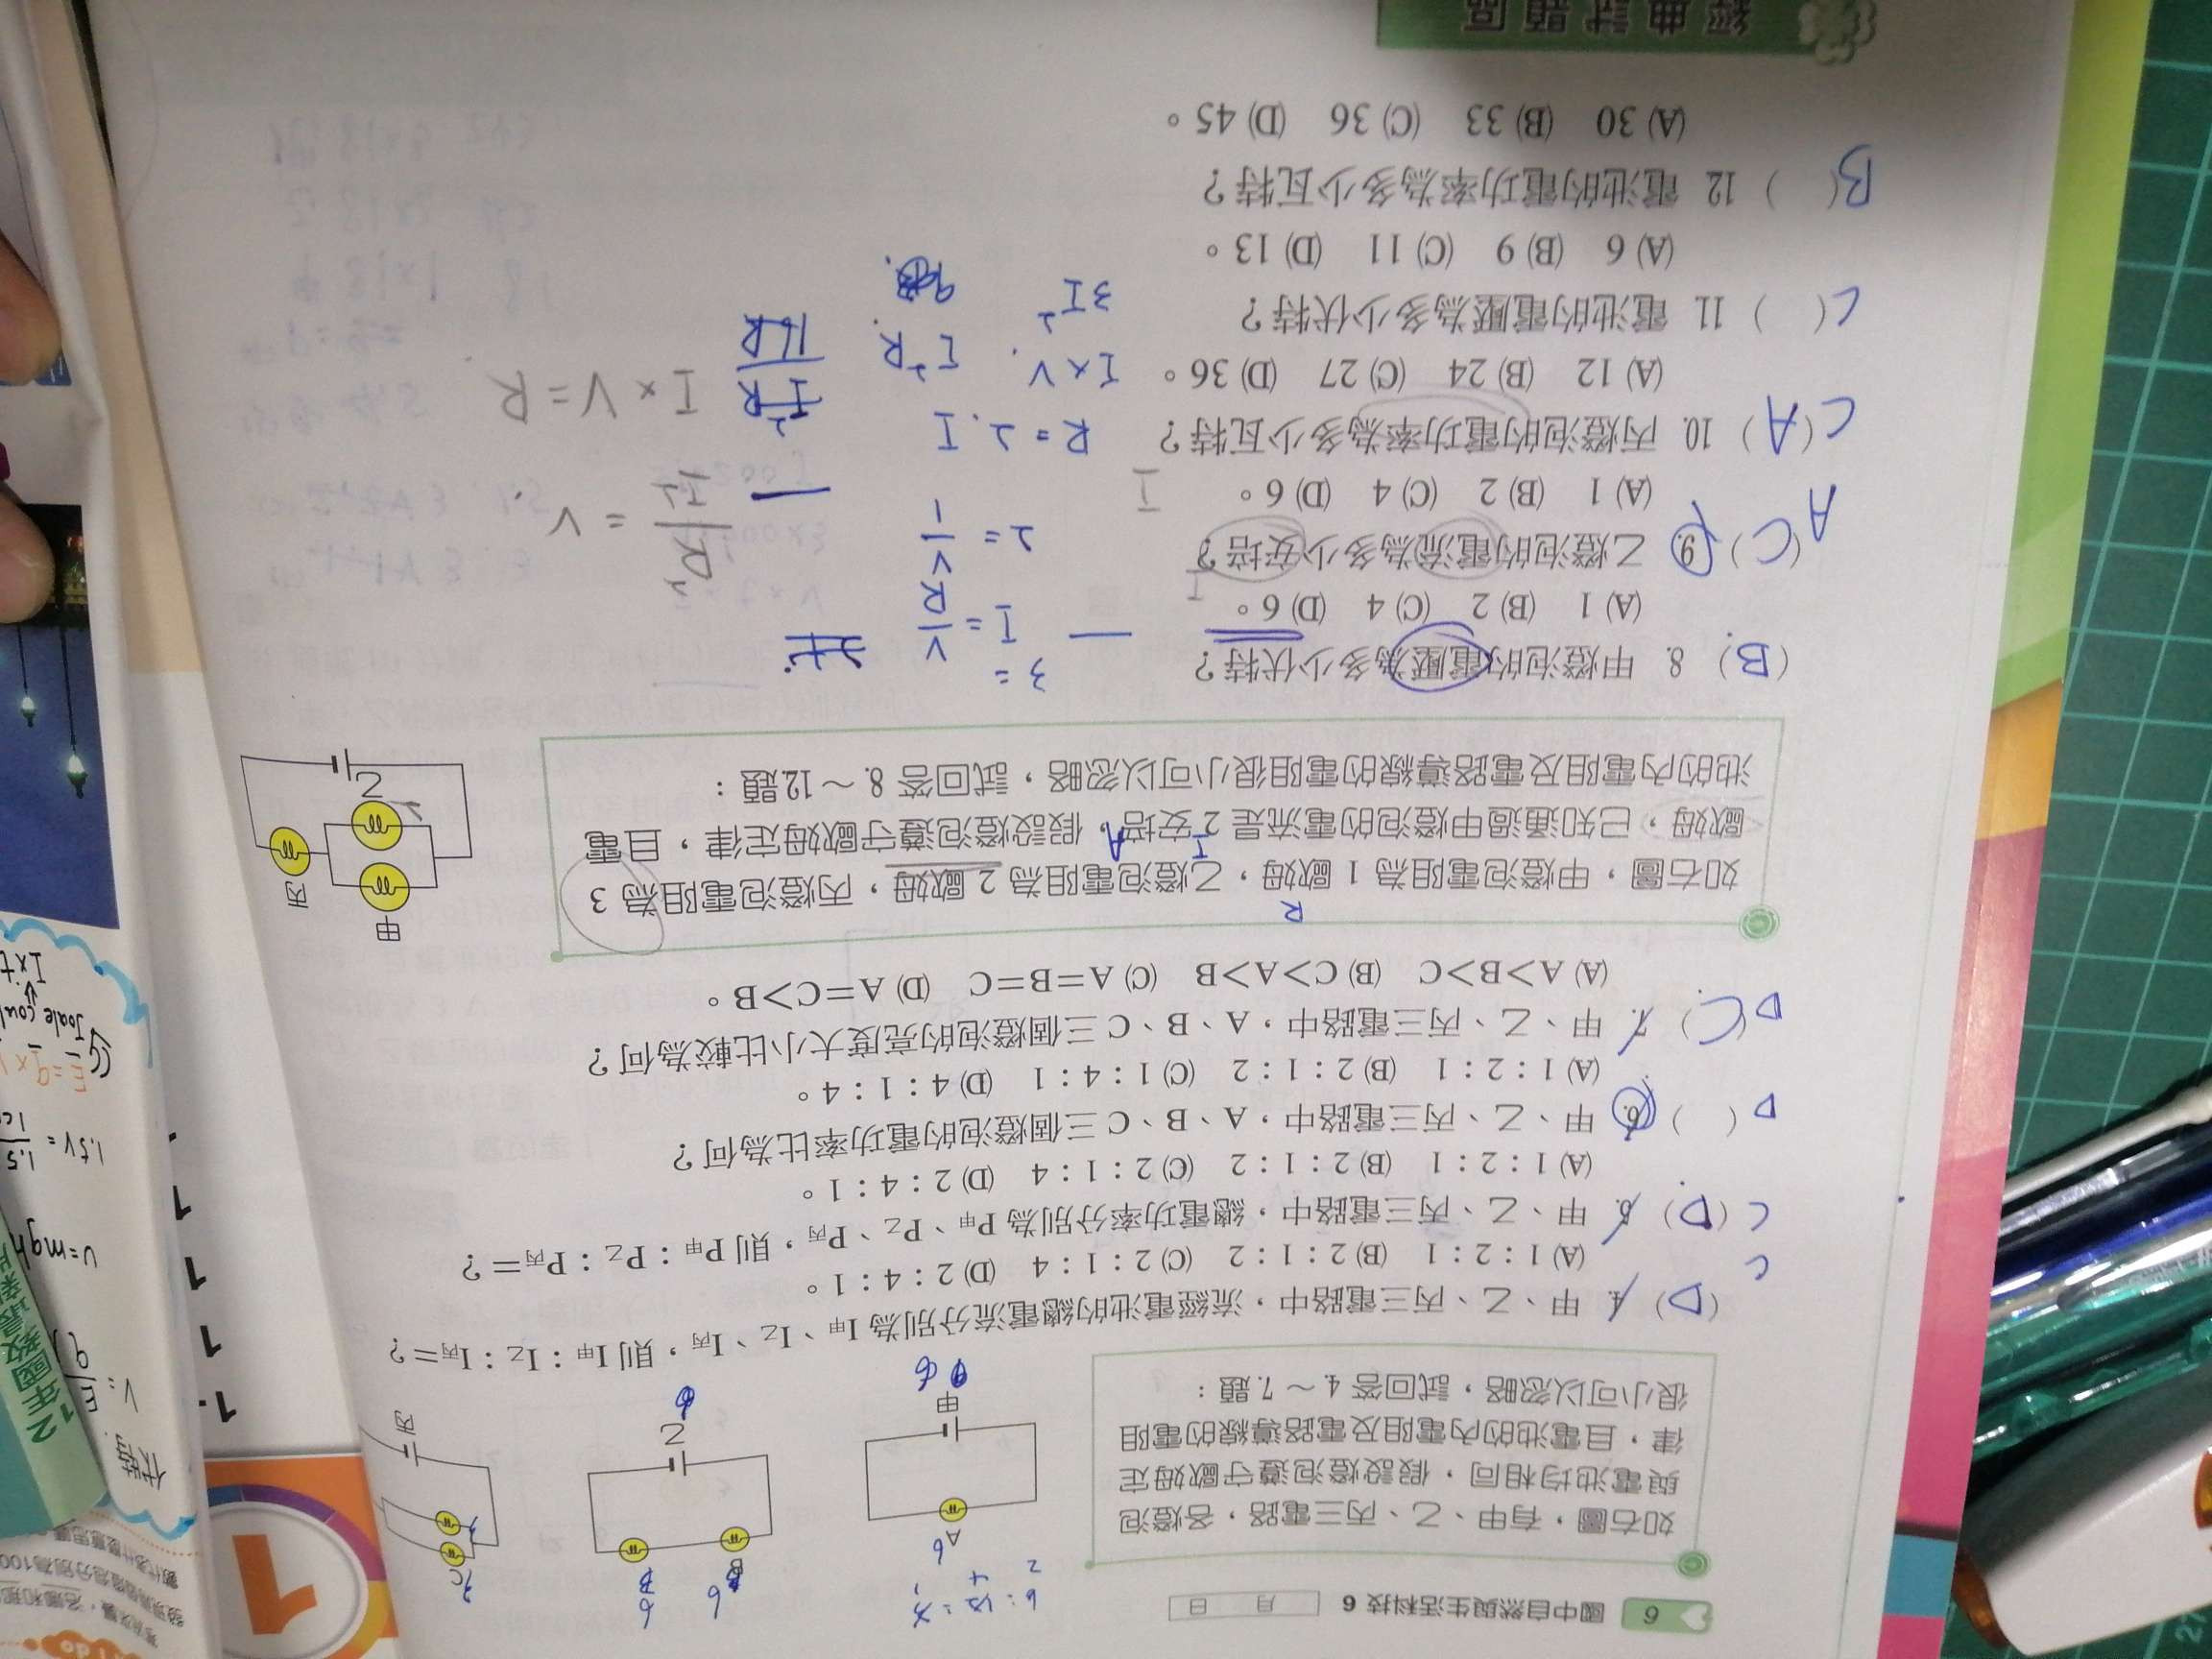 6 國中自然與生活科技 6 月 日
如右圖，有甲、乙、丙三電路，各燈泡
與電池均相同，假設燈泡遵守歐姆定
律，且電池的內電阻及電路導線的電阻
很小可以忽略，試回答 4.～7.題：
A
6
甲
B
6
乙
C
丙
(D) 4. 甲、乙、丙三電路中，流經電池的總電流分別為 I甲、I乙、I丙，則 I甲：I乙：I丙＝？
C
(A) 1：2：1 (B) 2：1：2 (C) 2：1：4 (D) 2：4：1。
C (D) 5. 甲、乙、丙三電路中，總電功率分別為 P甲、P乙、P丙，則 P甲：P乙：P丙＝？
(A) 1：2：1 (B) 2：1：2 (C) 2：1：4 (D) 2：4：1。
D ( ) 6. 甲、乙、丙三電路中，A、B、C 三個燈泡的電功率比為何？
(A) 1：2：1 (B) 2：1：2 (C) 1：4：1 (D) 4：1：4。
D (C) 7. 甲、乙、丙三電路中，A、B、C 三個燈泡的亮度大小比較為何？
(A) A＞B＞C (B) C＞A＞B (C) A＝B＝C (D) A＝C＞B。
R
如右圖，甲燈泡電阻為 1 歐姆，乙燈泡電阻為 2 歐姆，丙燈泡電阻為 3
歐姆，已知通過甲燈泡的電流是 2 安培，假設燈泡遵守歐姆定律，且電
I A
池的內電阻及電路導線的電阻很小可以忽略，試回答 8.～12.題：
甲
丙
乙
(B) 8. 甲燈泡的電壓為多少伏特？
(A) 1 (B) 2 (C) 4 (D) 6。
3 =
I = V/R
2 = V/1
A (C) 9. 乙燈泡的電流為多少安培？
(A) 1 (B) 2 (C) 4 (D) 6。
I
= V
C (A) 10. 丙燈泡的電功率為多少瓦特？
R = 2. I
(A) 12 (B) 24 (C) 27 (D) 36。
I×V. I²R.
I × V = R
C ( ) 11. 電池的電壓為多少伏特？
3I²
(A) 6 (B) 9 (C) 11 (D) 13。
B ( ) 12. 電池的電功率為多少瓦特？
(A) 30 (B) 33 (C) 36 (D) 45。
經典試題區
1
伏特
V = E/q
U=mgh
1.5V =
E=q×V
Joule
I×t
12年國教